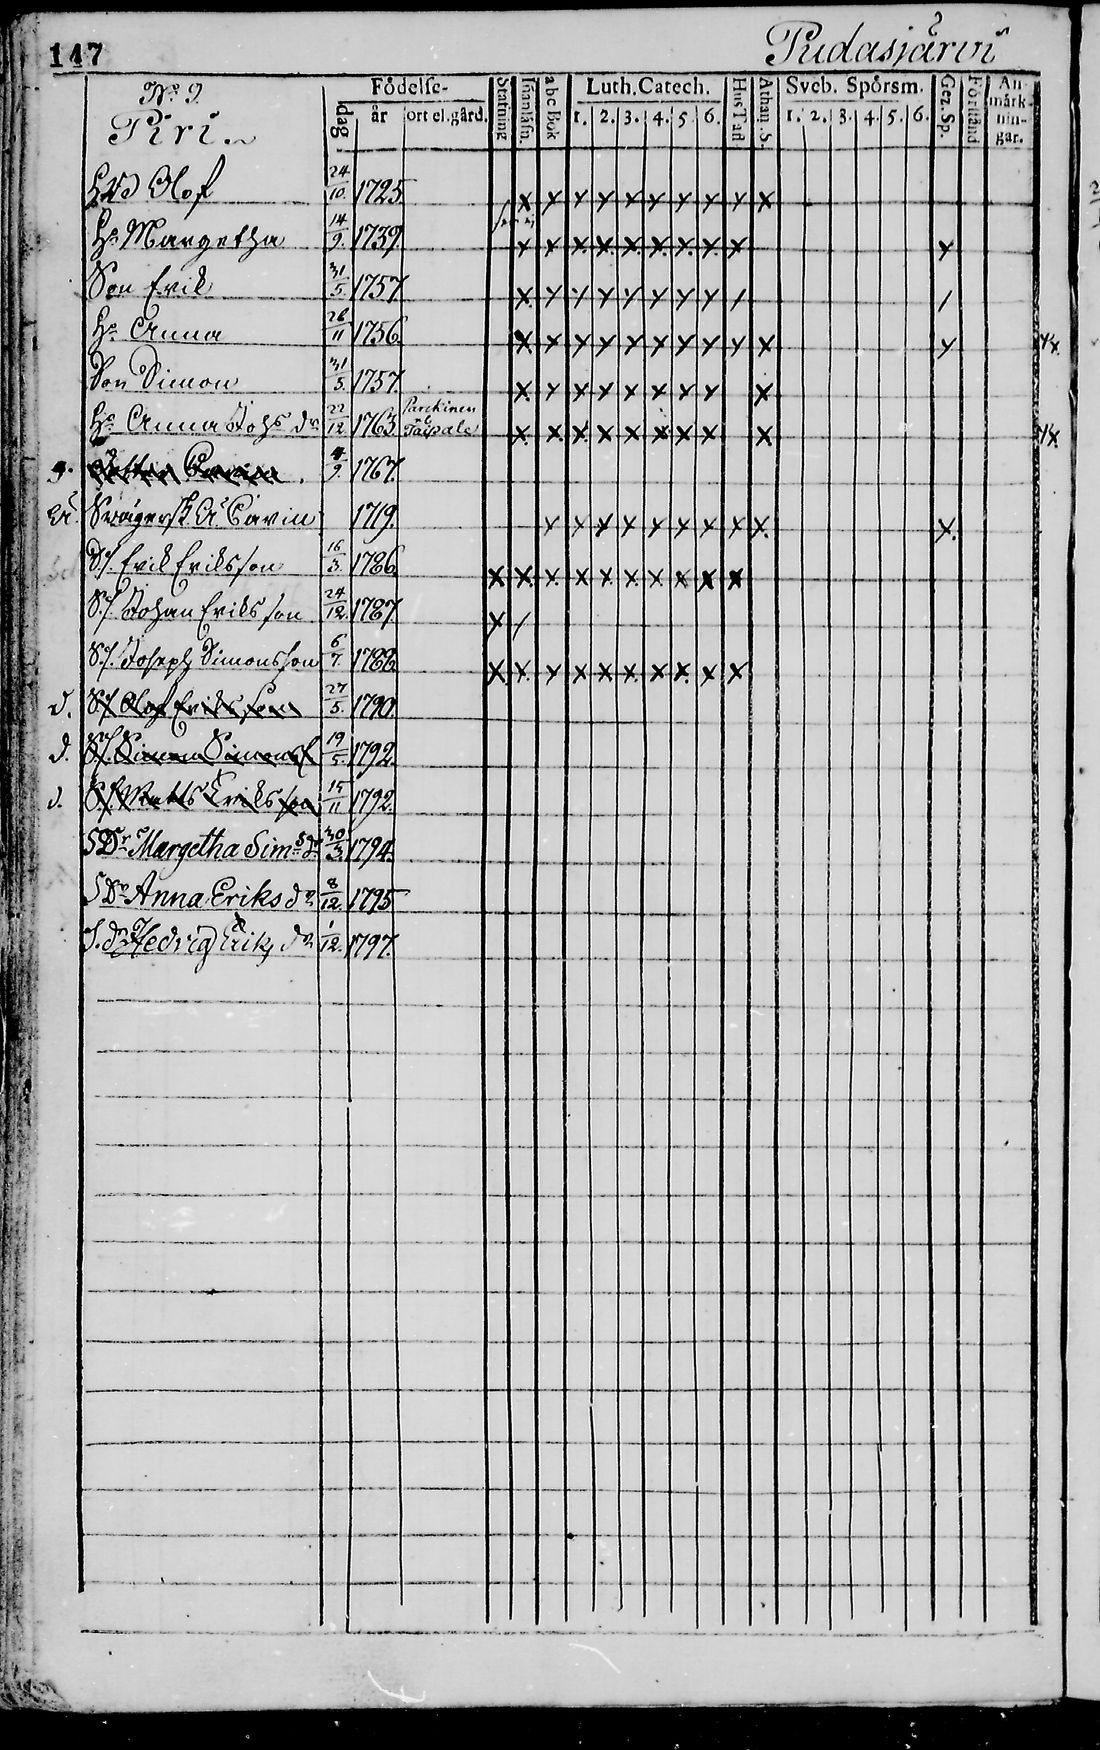 147 Pudasjärvi
No. 9. Födelse- Stafning Inanläsn. abc Bok Luth. Catech. Hus Tafl Athan. S. Sveb. Spörsm. Gez. Sp. Förstånd An-
Piri dag. år ort el. gård. 1. 2. 3. 4. 5. 6. 1. 2. 3. 4. 5. 6. märk-
nin-
gar.
Olof 24/10. 1725 x x x x x x x x x x
Hu Margetha 14/9. 1739. x x x x x x x x x x
Son Erik 31/5. 1757 x x x x x x x x / /
Hu Anna 26/11 1756. x x x x x x x x x x x
Son Simon 31/5. 1757. x x x x x x x x x
Parckinen
Hu Anna Johs dr 22/12 1763 Taipale x x x x x x x x x
4/9. 1767.
Swägersk. Carin 1719. x x x x x x x x x x
S.S. Erik Eriksson 16/3. 1786 x x x x x x x x x x
S.S. Johan Eriksson 24/12. 1787. x /
S.S. Joseph Simonsson 6/7. 1788 x x x x x x x x x x
d. S.S. Olof Eriksson 27/5. 1790.
d. S.S. Simon Simonss 19/5. 1792.
d. S.S. Matts Eriksson 15/11 1792.
S Dr Margetha Sims dr 30/3. 1794.
S Dr Anna Eriks dr 8/12. 1795
S. dr Hedvig Eriks dr 1/12. 1797.